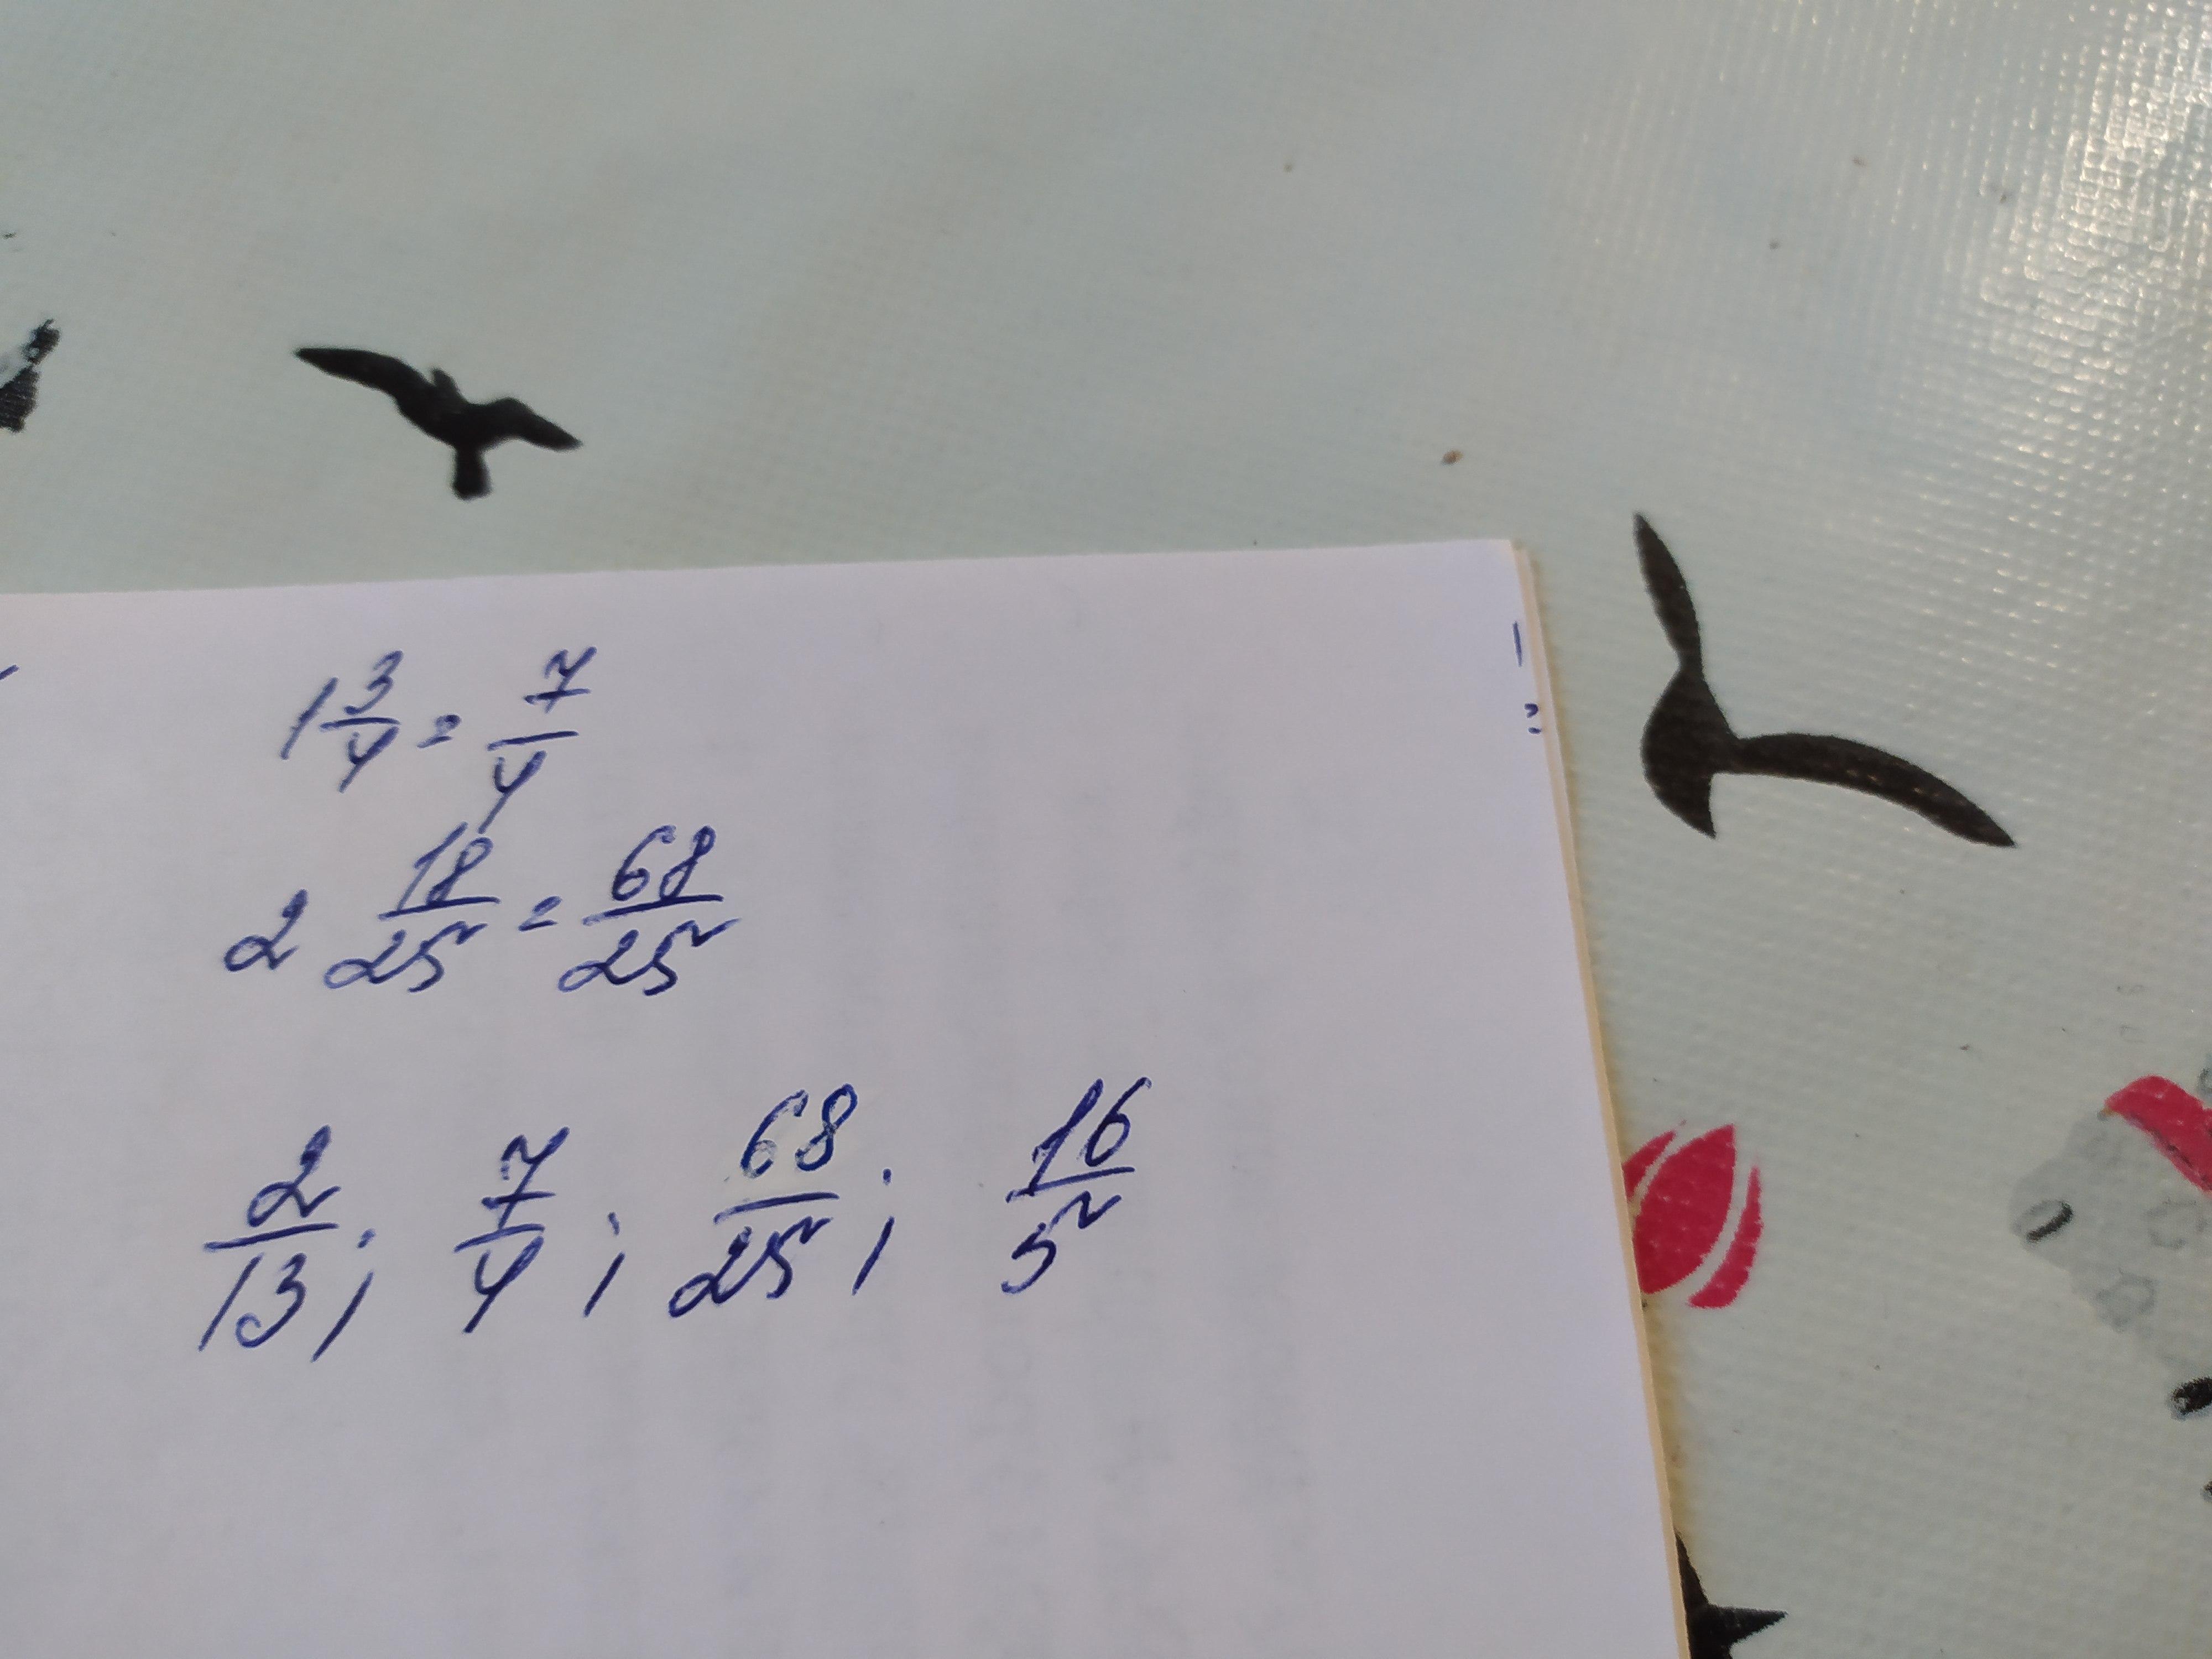 1 3/4 = 7/4
2 18/25 = 68/25
2/13; 7/4; 68/25; 16/5